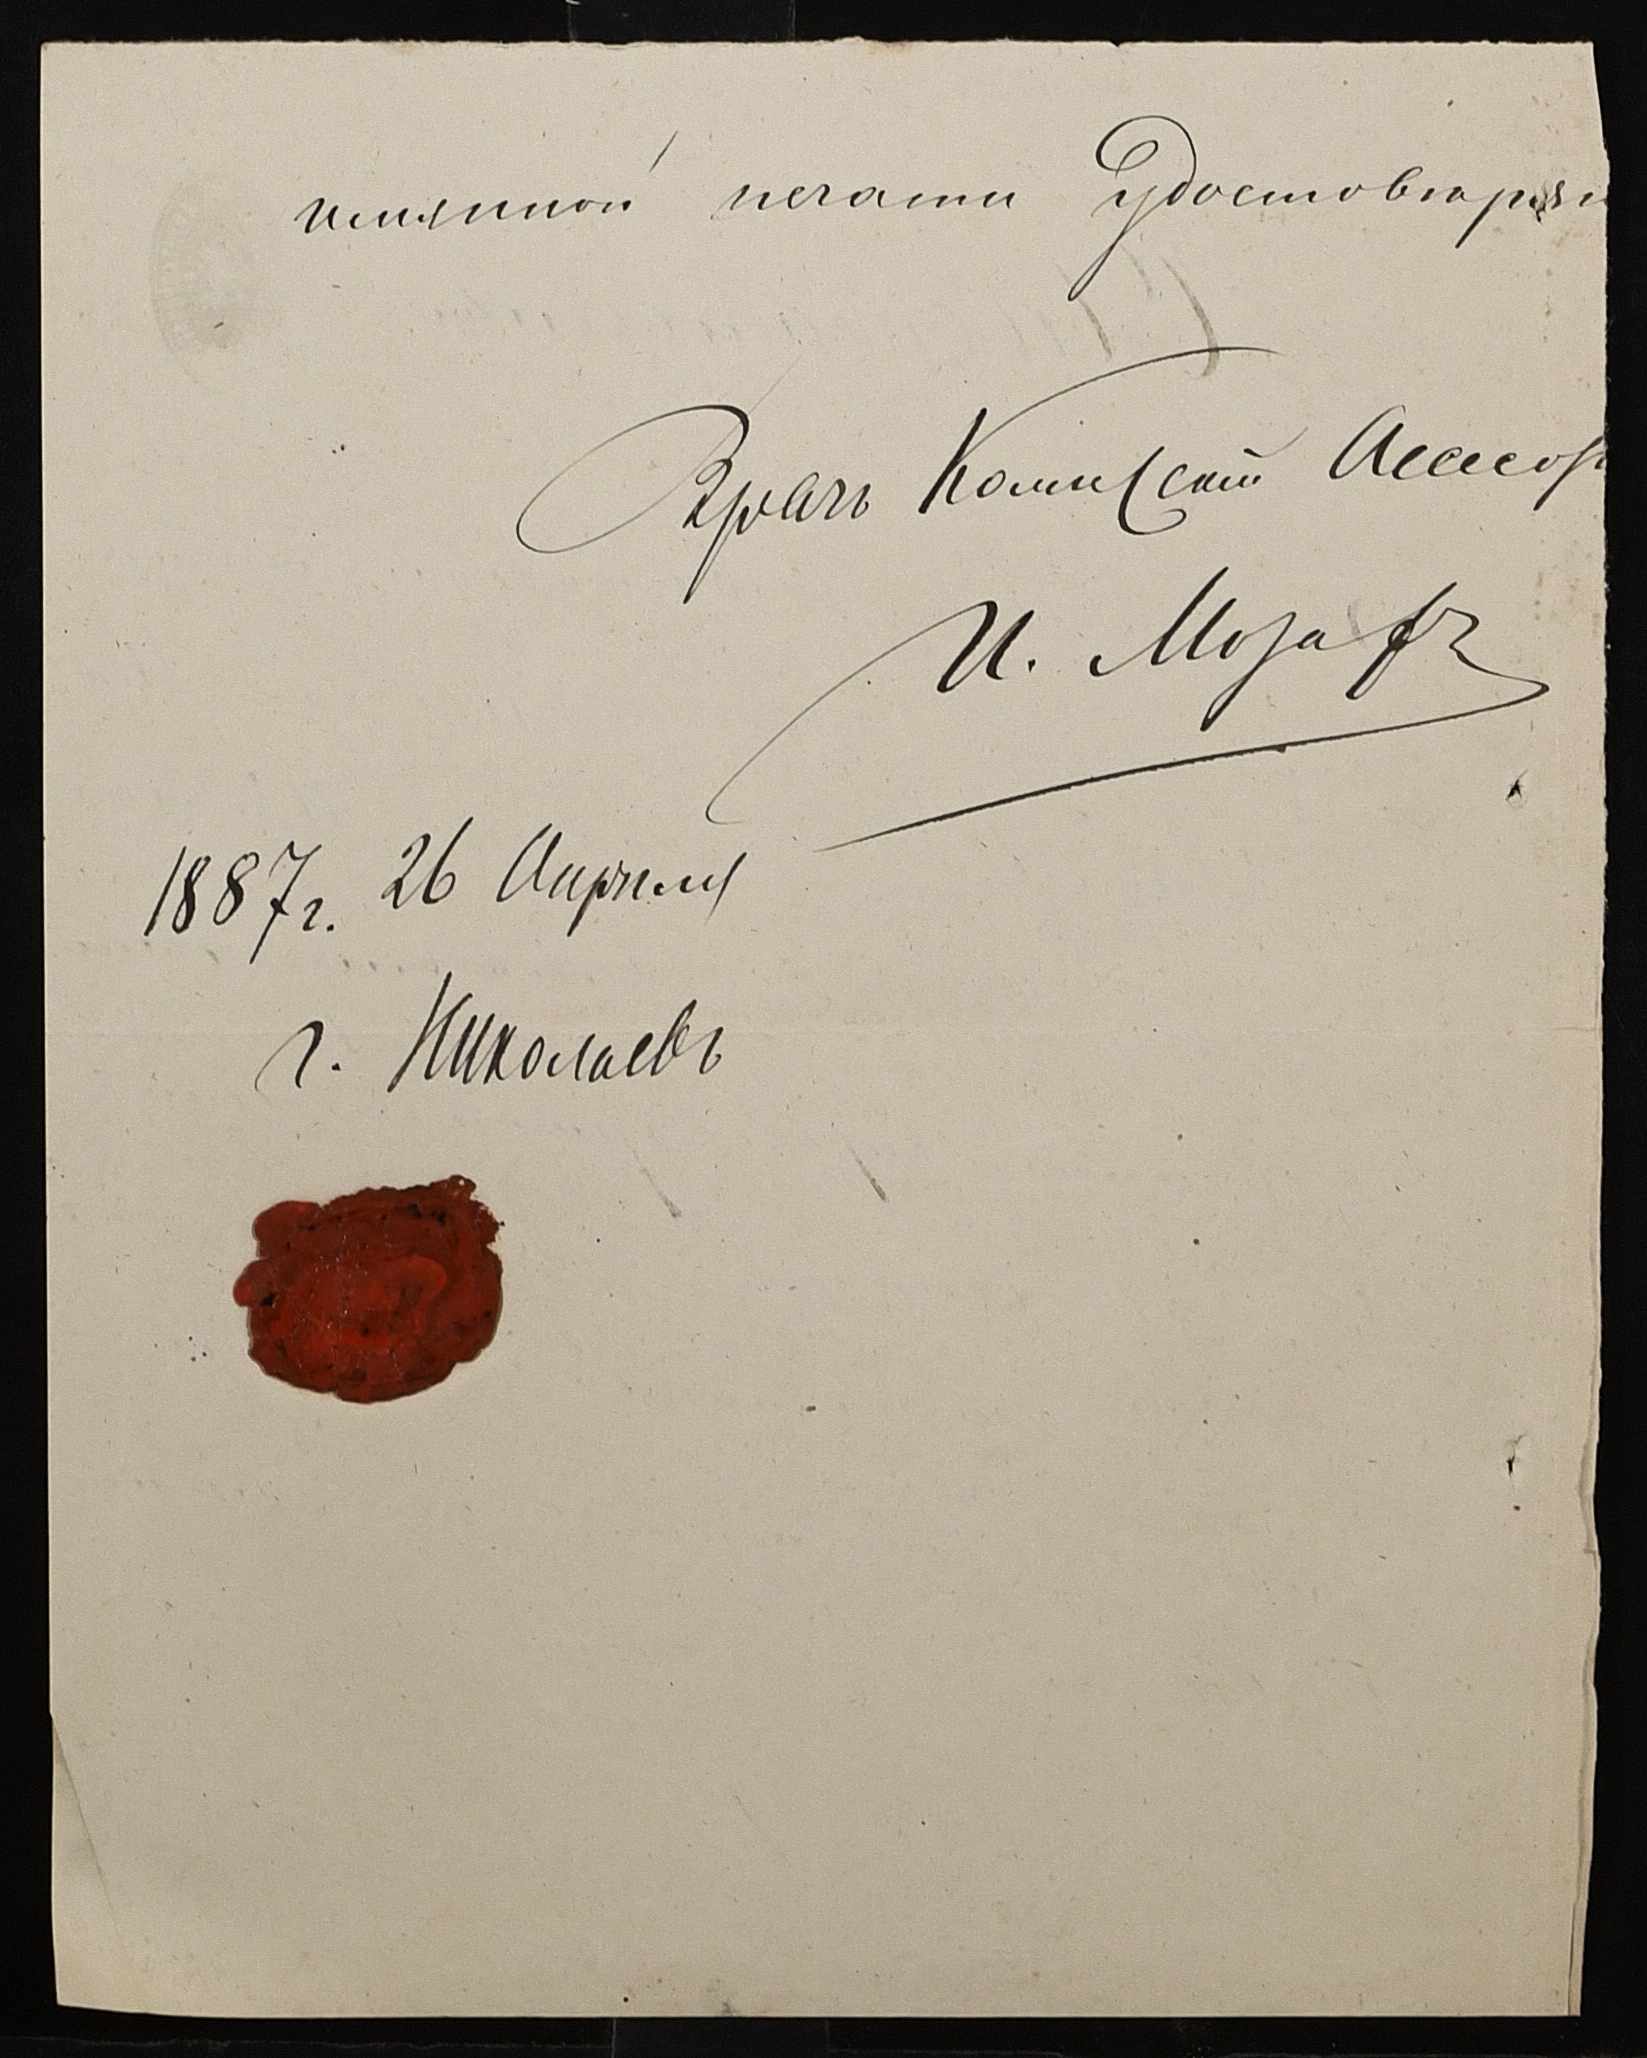 имянной печати Удостоверяю
Врачъ Колежскій Асесоръ
И.
1887 г. 26 Апреля
г. Николаевъ